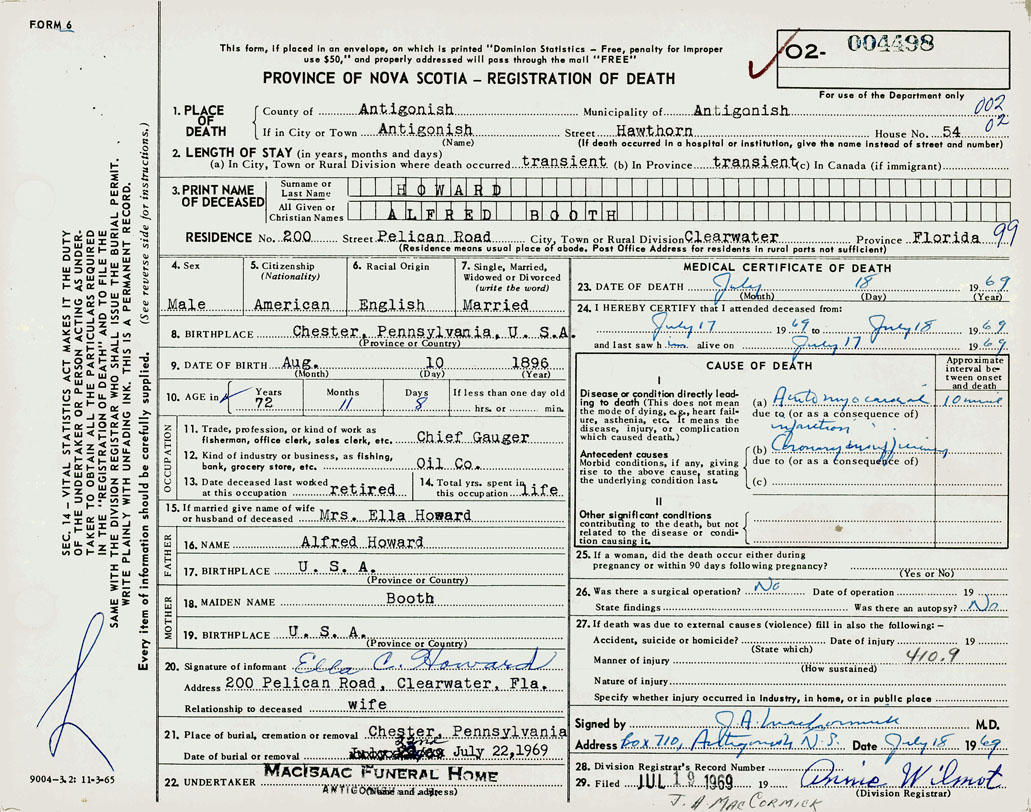 FORM 6
This form, if placed in an envelope, on which is printed "Dominion Statistics – Free, penalty for improper
use $50," and properly addressed will pass through the mail "FREE"
PROVINCE OF NOVA SCOTIA – REGISTRATION OF DEATH
O2- 004498
For use of the Department only
002
02
1. PLACE OF DEATH County of Antigonish Municipality of Antigonish
If in City or Town Antigonish Street Hawthorn House No. 54
(Name) (If death occurred in a hospital or institution, give the name instead of street and number)
2. LENGTH OF STAY (in years, months and days)
(a) In City, Town or Rural Division where death occurred transient (b) In Province transient (c) In Canada (if immigrant)
3. PRINT NAME OF DECEASED Surname or Last Name HOWARD
All Given or Christian Names ALFRED BOOTH
RESIDENCE No. 200 Street Pelican Road City, Town or Rural Division Clearwater Province Florida 99
(Residence means usual place of abode. Post Office Address for residents in rural parts not sufficient)
4. Sex
Male
5. Citizenship
(Nationality)
American
6. Racial Origin
English
7. Single, Married,
Widowed or Divorced
(write the word)
Married
8. BIRTHPLACE Chester, Pennsylvania, U. S.A.
(Province or Country)
9. DATE OF BIRTH Aug. 10 1896
(Month) (Day) (Year)
10. AGE in Years Months Days If less than one day old
72 11 8 hrs. or min.
OCCUPATION
11. Trade, profession, or kind of work as
fisherman, office clerk, sales clerk, etc. Chief Gauger
12. Kind of industry or business, as fishing,
bank, grocery store, etc. Oil Co.
13. Date deceased last worked
at this occupation retired
14. Total yrs. spent in
this occupation life
15. If married give name of wife
or husband of deceased Mrs. Ella Howard
FATHER
16. NAME Alfred Howard
17. BIRTHPLACE U. S. A.
(Province or Country)
MOTHER
18. MAIDEN NAME Booth
19. BIRTHPLACE U. S. A.
(Province or Country)
20. Signature of informant Ella C. Howard
Address 200 Pelican Road, Clearwater, Fla.
Relationship to deceased wife
21. Place of burial, cremation or removal Chester, Pennsylvania
22nd
Date of burial or removal July 22,1969
22. UNDERTAKER MACISAAC FUNERAL HOME
ANTIGONISH
(Name and address)
MEDICAL CERTIFICATE OF DEATH
23. DATE OF DEATH July 18 1969
(Month) (Day) (Year)
24. I HEREBY CERTIFY that I attended deceased from:
July 17 1969 to July 18 1969
and last saw him alive on July 17 1969
CAUSE OF DEATH
Approximate
interval be-
tween onset
and death
I
Disease or condition directly lead-
ing to death (This does not mean
the mode of dying, e.g., heart fail-
ure, asthenia, etc. It means the
disease, injury, or complication
which caused death.)
(a) Acute myocardial 10 mins
due to (or as a consequence of)
infarction
Antecedent causes
Morbid conditions, if any, giving
rise to the above cause, stating
the underlying condition last.
(b) Coronary insufficiency
due to (or as a consequence of)
(c)
II
Other significant conditions
contributing to the death, but not
related to the disease or condi-
tion causing it.
25. If a woman, did the death occur either during
pregnancy or within 90 days following pregnancy?
(Yes or No)
26. Was there a surgical operation? No Date of operation 19
State findings Was there an autopsy? No
27. If death was due to external causes (violence) fill in also the following: –
Accident, suicide or homicide? Date of injury 19
(State which)
Manner of injury 410.9
(How sustained)
Nature of injury
Specify whether injury occurred in Industry, in home, or in public place
Signed by J.A. MacCormick M.D.
Address Box 710, Antigonish N.S. Date July 18 1969
28. Division Registrar's Record Number
29. Filed JUL 19 1969 19 Annie Wilmot
(Division Registrar)
J. A MACCORMICK
SEC. 14 – VITAL STATISTICS ACT MAKES IT THE DUTY
OF THE UNDERTAKER OR PERSON ACTING AS UNDER-
TAKER TO OBTAIN ALL THE PARTICULARS REQUIRED
IN THE "REGISTRATION OF DEATH" AND TO FILE THE
SAME WITH THE DIVISION REGISTRAR WHO SHALL ISSUE THE BURIAL PERMIT.
WRITE PLAINLY WITH UNFADING INK. THIS IS A PERMANENT RECORD.
Every item of information should be carefully supplied. (See reverse side for instructions.)
9004-3.2: 11-3-65